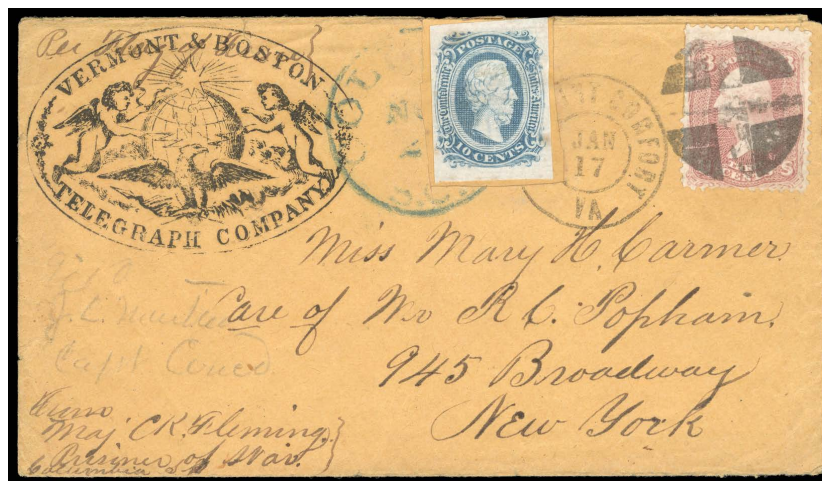 VERMONT & BOSTON
TELEGRAPH COMPANY
POSTAGE
The Confederate States of America
10 CENTS
JAN
17
VA
3
Miss Mary H. Carmer
Care of Wm R. C. Popham.
945 Broadway
New York
From
Maj. C.K. Fleming.
Prisoner of War.
Columbia S.C.